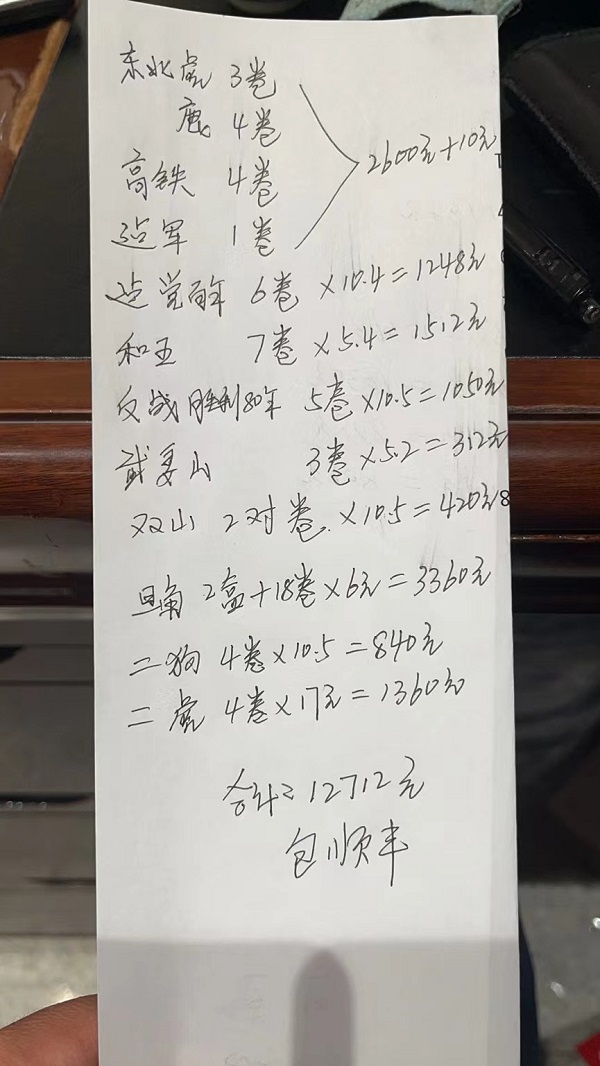 东北虎 3卷
鹿 4卷
高铁 4卷
建军 1卷
2600元+10元
建党百年 6卷 ×10.4=1248元
和五 7卷 ×5.4=1512元
反战胜利80年 5卷×10.5=1050元
武夷山 3卷×5.2=312元
双山 2对卷.×10.5=420元
旦角 2盒+18卷×6元=3360元
二狗 4卷×10.5=840元
二虎 4卷×17元=1360元
合计=12712元
包顺丰